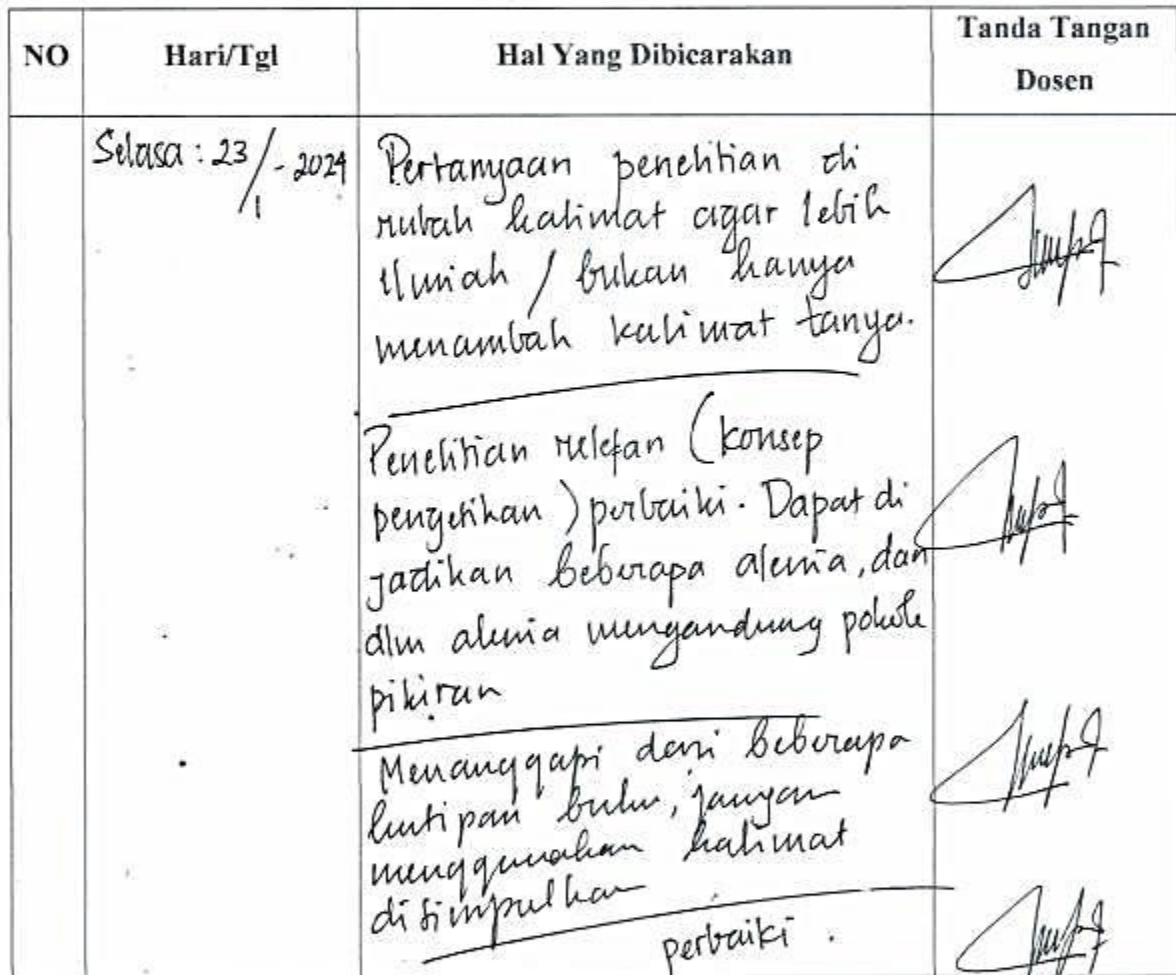 NO Hari/Tgl Hal Yang Dibicarakan Tanda Tangan Dosen
Selasa : 23/1 - 2024
Pertanyaan penelitian di
rubah kalimat agar lebih
ilmiah / bukan hanya
menambah kalimat tanya.
Penelitian relefan (konsep
pengetikan) perbaiki. Dapat di
jadikan beberapa alenia, dan
dlm alenia mengandung pokok
pikiran
Menanggapi dari beberapa
kutipan buku, jangan
menggunakan kalimat
disimpulkan
perbaiki.